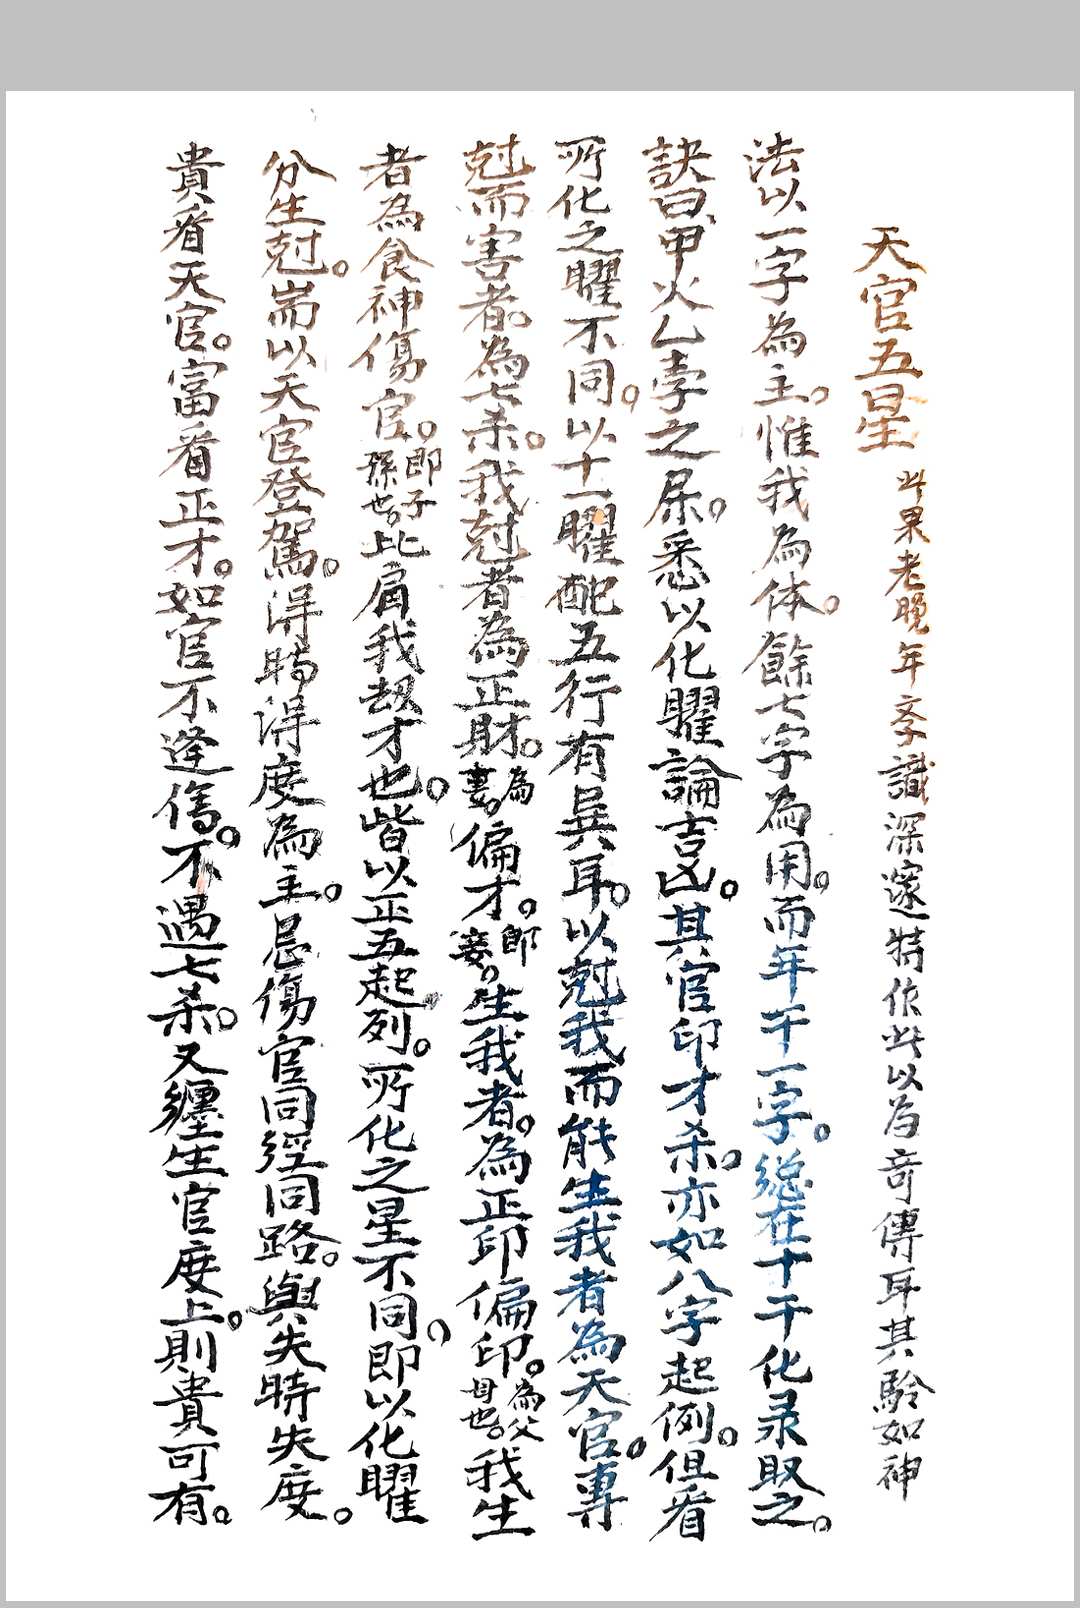 天官五星 此果老晚年学識深邃特作此以為奇傳耳其驗如神
法以一字為主。惟我為体。餘七字為用。而年干一字。総在十干化彔取之。
訣曰、甲火乙孛之屎。悉以化曜論吉凶。其官印才杀。亦如八字起例。但看
所化之曜不同。以十一曜配五行有異耳。以尅我而能生我者為天官。專
尅而害者。為七杀。我尅者為正財。為妻。偏才。即妾。生我者。為正印偏印。為父母也。我生
者為食神傷官。即子孫也。比肩我刼才也。皆以正五起列。所化之星不同。即以化曜
分生尅。耑以天官登駕。得時得度為主。忌傷官同経同路。與失時失度。
貴看天官。富看正才。如官不逢傷。不遇七杀。又纏生官度上。則貴可有。